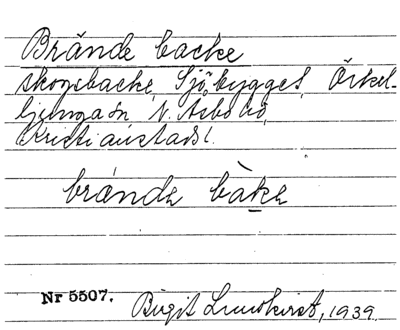 Brände backe
skogsbacke, Sjöbygget, Örkel-
ljunga sn, N. Åsbo hd,
Kristianstads l.
brände bàke
Nr 5507.
Birgit Lundkvist, 1939.